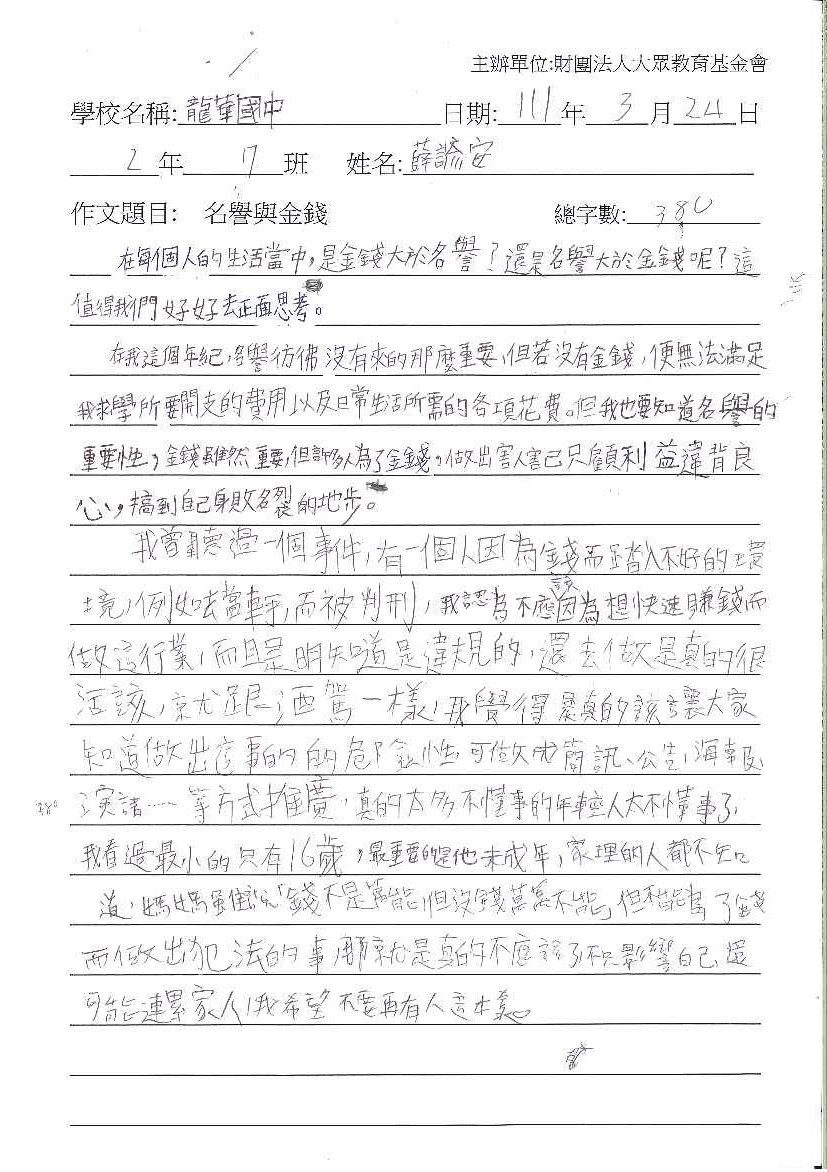 主辦單位:財團法人大眾教育基金會
學校名稱:龍華國中 日期:111年3月24日
2年17班 姓名:薛諺安
作文題目: 名譽與金錢 總字數:380
在每個人的生活當中,是金錢大於名譽?還是名譽大於金錢呢?這
值得我們好好去正面思考。
在我這個年紀,名譽彷彿沒有來的那麼重要,但若沒有金錢,便無法滿足
我求學所要開支的費用以及日常生活所需的各項花費。但我也要知道名譽的
重要性,金錢雖然重要,但許多人為了金錢,做出害人害己只顧利益違背良
心,搞到自己身敗名裂的地步。
我曾聽過一個事件,有一個人因為金錢而踏入不好的環
境,例如去當車手,而被判刑,我認為不應該因為想快速賺錢而
做這行業,而且是明知道是違規的,還去做是真的很
活該,就跟酒駕一樣,我覺得是真的該讓大家
知道做出這事的的危險性,可做成簡訊、公告,海報,
演講……等方式推廣,真的太多不懂事的年輕人太不懂事了,
380
我看過最小的只有16歲,最重要的是他未成年,家理的人都不知
道,媽媽雖說「錢不是萬能,但沒錢萬萬不能」,但不能為了金錢
而做出犯法的事,那就是真的不應該了,不只影響自己還
可能連累家人,我希望不要再有人這樣。